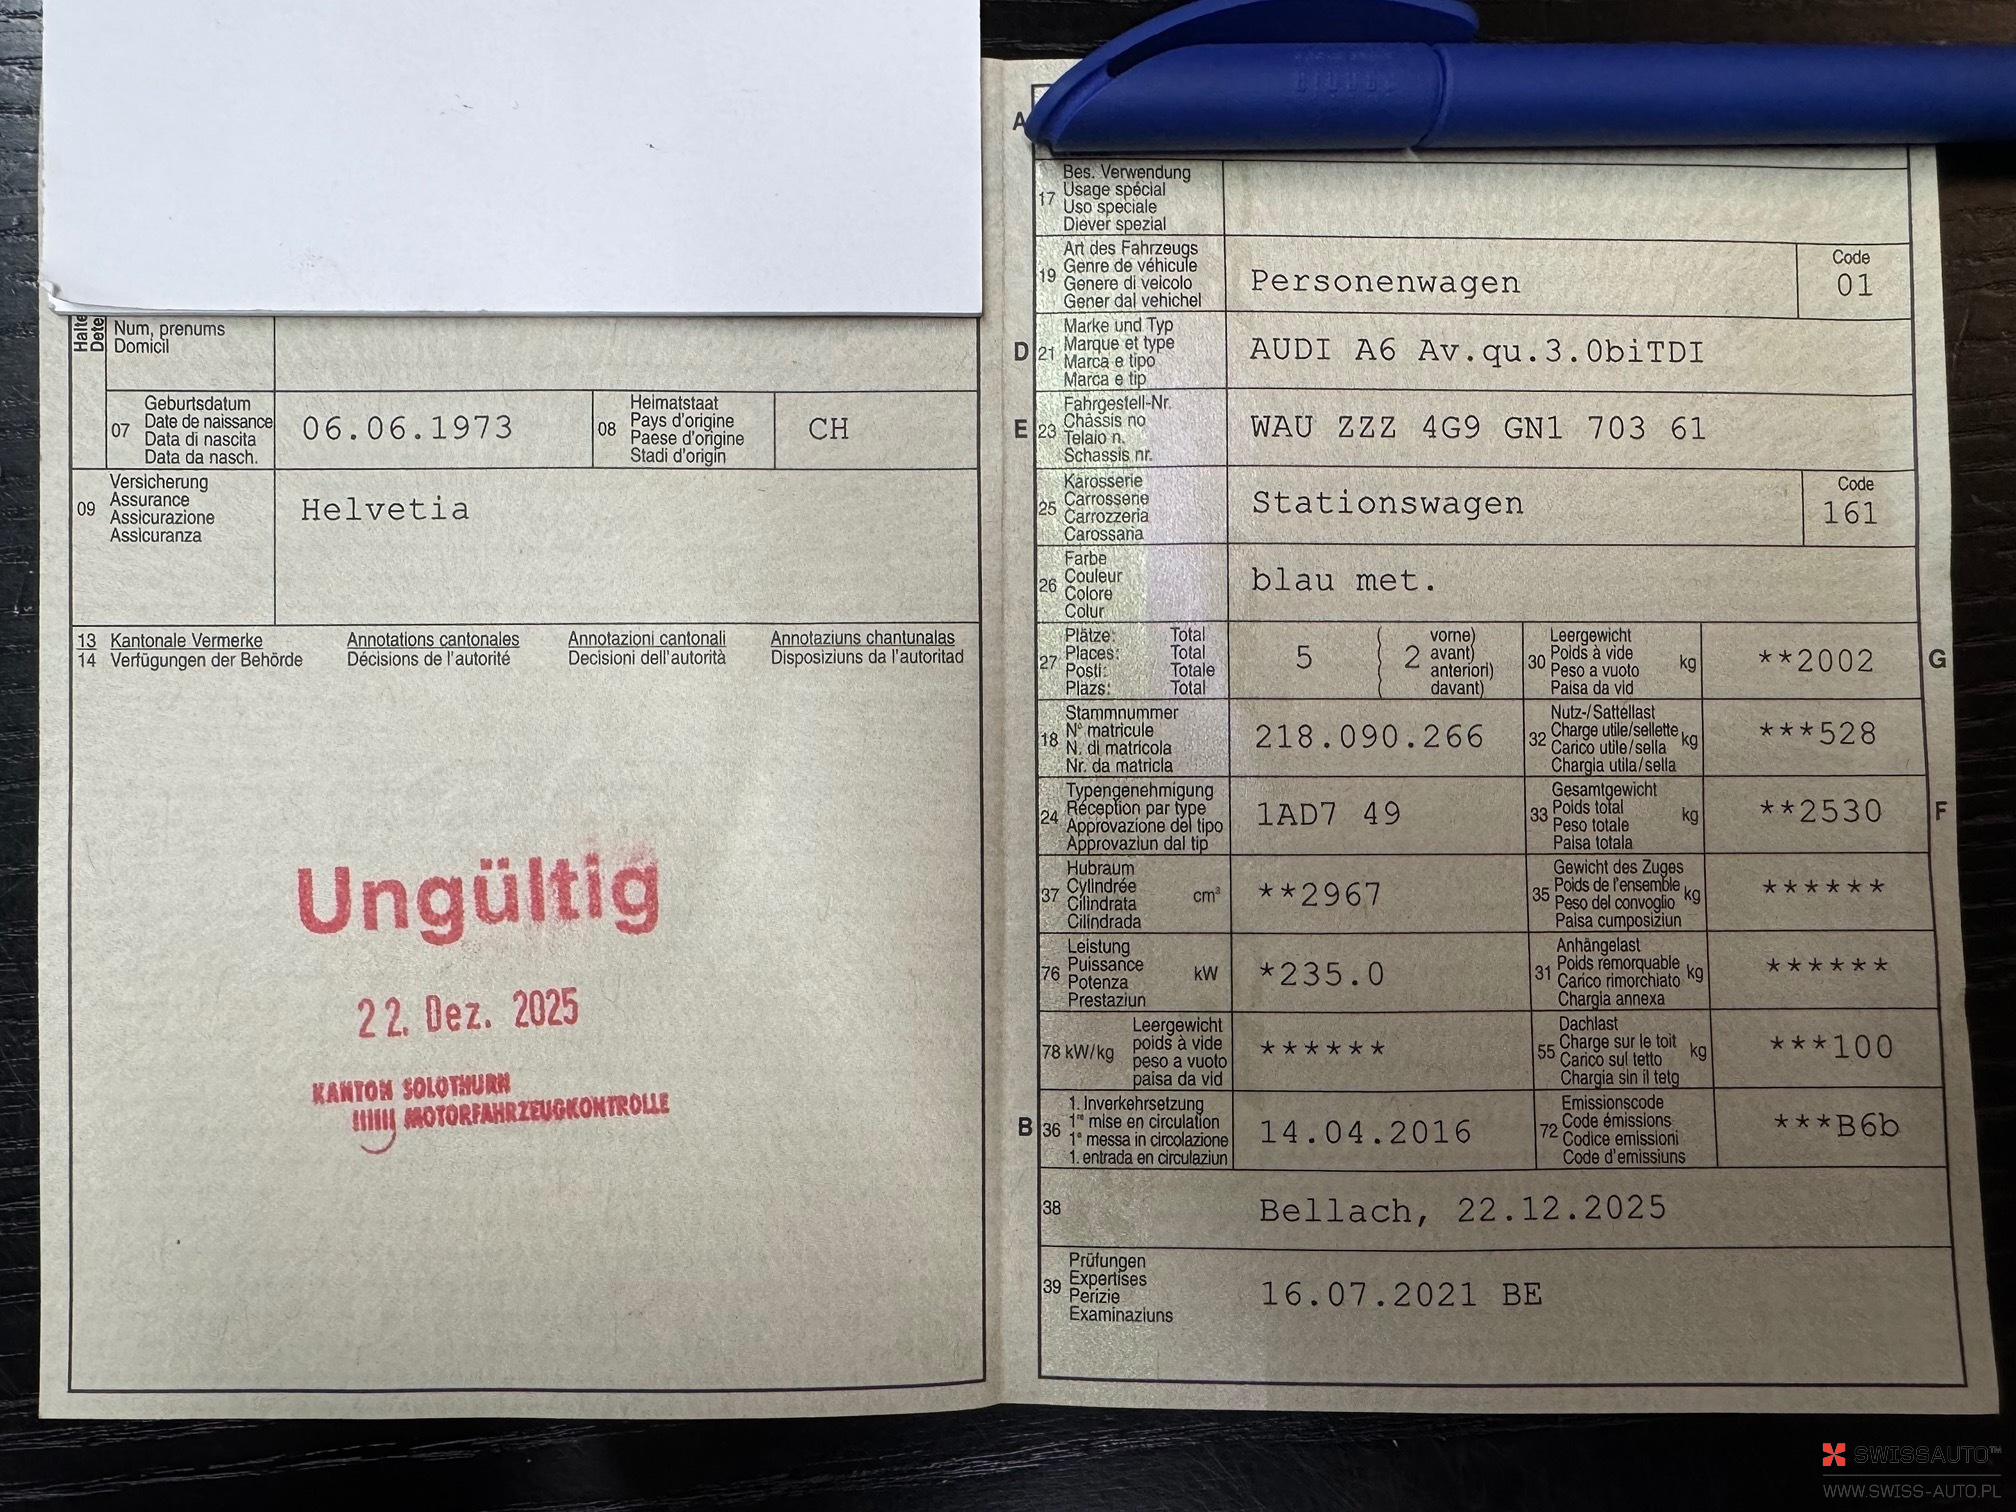 Halte
Dete
Num, prenums
Domicil
07
Geburtsdatum
Date de naissance
Data di nascita
Data da nasch.
06.06.1973
08
Heimatstaat
Pays d'origine
Paese d'origine
Stadi d'origin
CH
09
Versicherung
Assurance
Assicurazione
Assicuranza
Helvetia
13 Kantonale Vermerke Annotations cantonales Annotazioni cantonali Annotaziuns chantunalas
14 Verfügungen der Behörde Décisions de l'autorité Decisioni dell'autorità Disposiziuns da l'autoritad
Ungültig
22. Dez. 2025
KANTON SOLOTHURN
MOTORFAHRZEUGKONTROLLE
A
17
Bes. Verwendung
Usage spécial
Uso speciale
Diever spezial
19
Art des Fahrzeugs
Genre de véhicule
Genere di veicolo
Gener dal vehichel
Personenwagen
Code
01
D
21
Marke und Typ
Marque et type
Marca e tipo
Marca e tip
AUDI A6 Av.qu.3.0biTDI
E
23
Fahrgestell-Nr.
Châssis no
Telaio n.
Schassis nr.
WAU ZZZ 4G9 GN1 703 61
25
Karosserie
Carrosserie
Carrozzeria
Carossaria
Stationswagen
Code
161
26
Farbe
Couleur
Colore
Colur
blau met.
27
Plätze: Total
Places: Total
Posti: Totale
Plazs: Total
5
( 2 vorne)
( avant)
( anteriori)
( davant)
30
Leergewicht
Poids à vide
Peso a vuoto
Paisa da vid
kg
**2002
G
18
Stammnummer
N° matricule
N. di matricola
Nr. da matricla
218.090.266
32
Nutz-/Sattellast
Charge utile/sellette
Carico utile/sella
Chargia utila/sella
kg
***528
24
Typengenehmigung
Réception par type
Approvazione del tipo
Approvaziun dal tip
1AD7 49
33
Gesamtgewicht
Poids total
Peso totale
Paisa totala
kg
**2530
F
37
Hubraum
Cylindrée
Cilindrata
Cilindrada
cm³
**2967
35
Gewicht des Zuges
Poids de l'ensemble
Peso del convoglio
Paisa cumposiziun
kg
******
76
Leistung
Puissance
Potenza
Prestaziun
kW
*235.0
31
Anhängelast
Poids remorquable
Carico rimorchiato
Chargia annexa
kg
******
78 kW/kg
Leergewicht
poids à vide
peso a vuoto
paisa da vid
******
55
Dachlast
Charge sur le toit
Carico sul tetto
Chargia sin il tetg
kg
***100
B
36
1. Inverkehrsetzung
1re mise en circulation
1a messa in circolazione
1. entrada en circulaziun
14.04.2016
72
Emissionscode
Code émissions
Codice emissioni
Code d'emissiuns
***B6b
38
Bellach, 22.12.2025
39
Prüfungen
Expertises
Perizie
Examinaziuns
16.07.2021 BE
SWISSAUTO™
WWW.SWISS-AUTO.PL